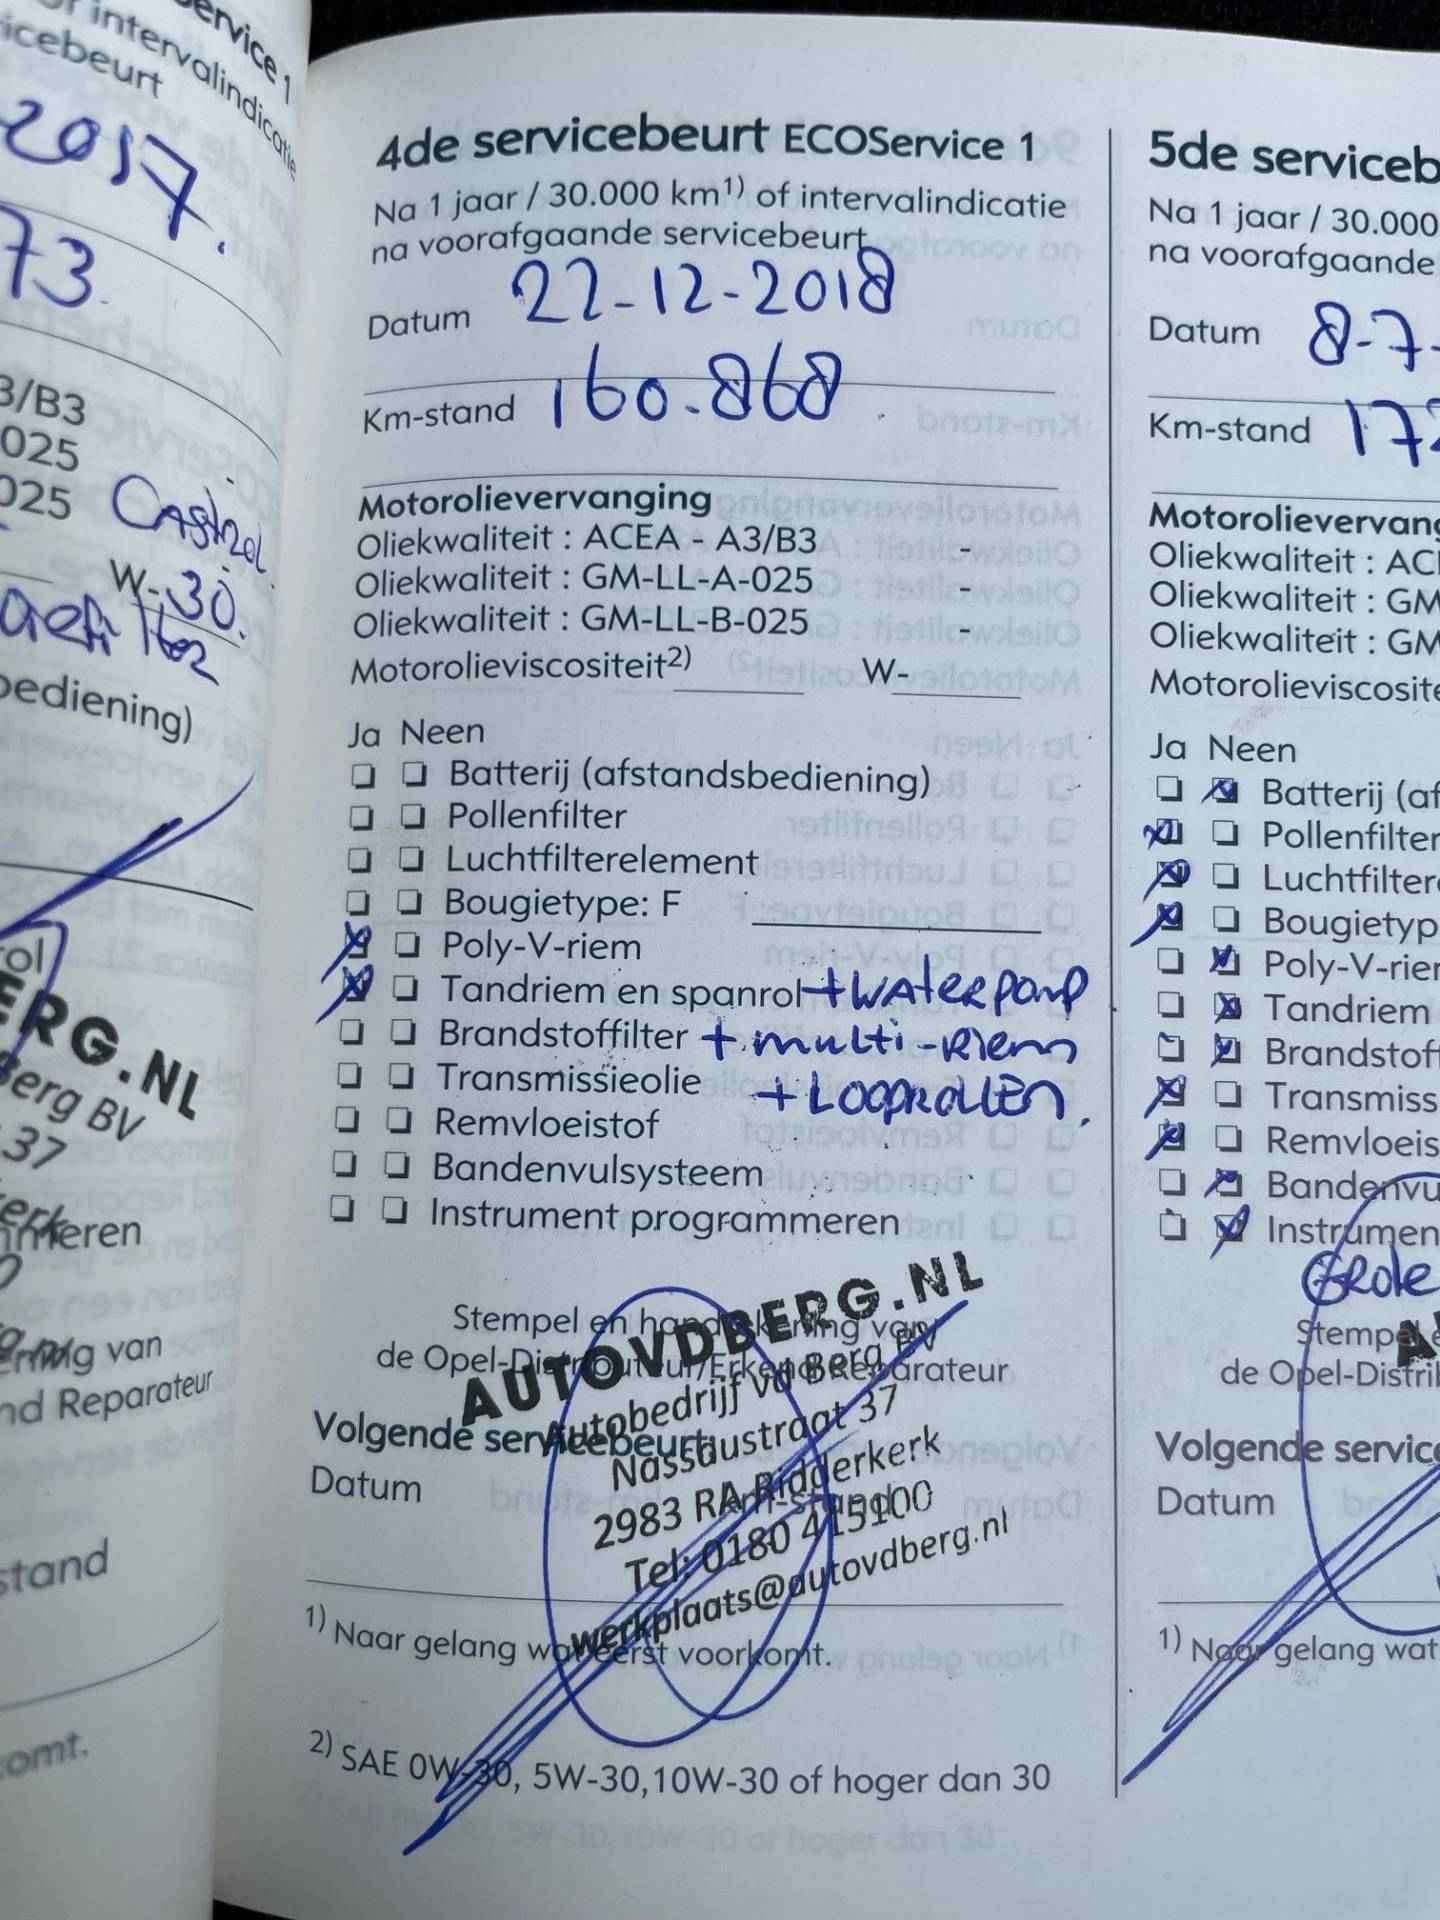 ervice 1
of intervalindicatie
icebeurt
2017.
73.
3/B3
025
025 Castrol
W-30.
bediening)
rol
ERG.NL
Berg BV
37
kerk
mmeren
ning van
nd Reparateur
stand
omt.
4de servicebeurt ECOService 1
Na 1 jaar / 30.000 km1) of intervalindicatie
na voorafgaande servicebeurt
Datum 22-12-2018
Km-stand 160.868
Motorolievervanging
Oliekwaliteit : ACEA - A3/B3 -
Oliekwaliteit : GM-LL-A-025 -
Oliekwaliteit : GM-LL-B-025 -
Motorolieviscositeit2) W-
Ja Neen
Batterij (afstandsbediening)
Pollenfilter
Luchtfilterelement
Bougietype: F
Poly-V-riem
Tandriem en spanrol + waterpomp
Brandstoffilter + multi-riem
Transmissieolie + Looprollen.
Remvloeistof
Bandenvulsysteem
Instrument programmeren
Stempel en handtekening van
de Opel-Distributeur/Erkend Reparateur
AUTOVDBERG.NL
Autobedrijf vd Berg BV
Nassaustraat 37
2983 RA Ridderkerk
Tel: 0180 415100
werkplaats@autovdberg.nl
Volgende servicebeurt:
Datum Km-stand
1) Naar gelang wat eerst voorkomt.
2) SAE 0W-30, 5W-30,10W-30 of hoger dan 30
5de serviceb
Na 1 jaar / 30.000
na voorafgaande
Datum 8-7-
Km-stand 172
Motorolievervang
Oliekwaliteit : ACE
Oliekwaliteit : GM
Oliekwaliteit : GM
Motorolieviscosite
Ja Neen
Batterij (af
Pollenfilter
Luchtfiltere
Bougietyp
Poly-V-rier
Tandriem
Brandstoff
Transmiss
Remvloeis
Bandenvu
Instrumen
Grote
Stempel e
de Opel-Distrib
Volgende service
Datum
1) Naar gelang wat